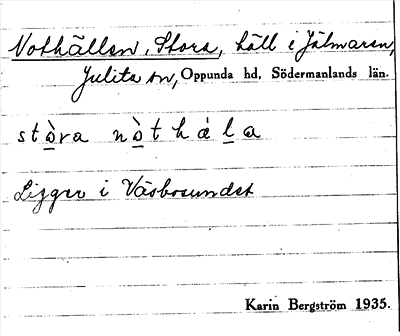 Nothällen, Stora, häll i Jälmaren,
Julita sn, Oppunda hd, Södermanlands län.
stò̱ra nò̱thá̇ḻa
Ligger i Väsbosundet
Karin Bergström 1935.